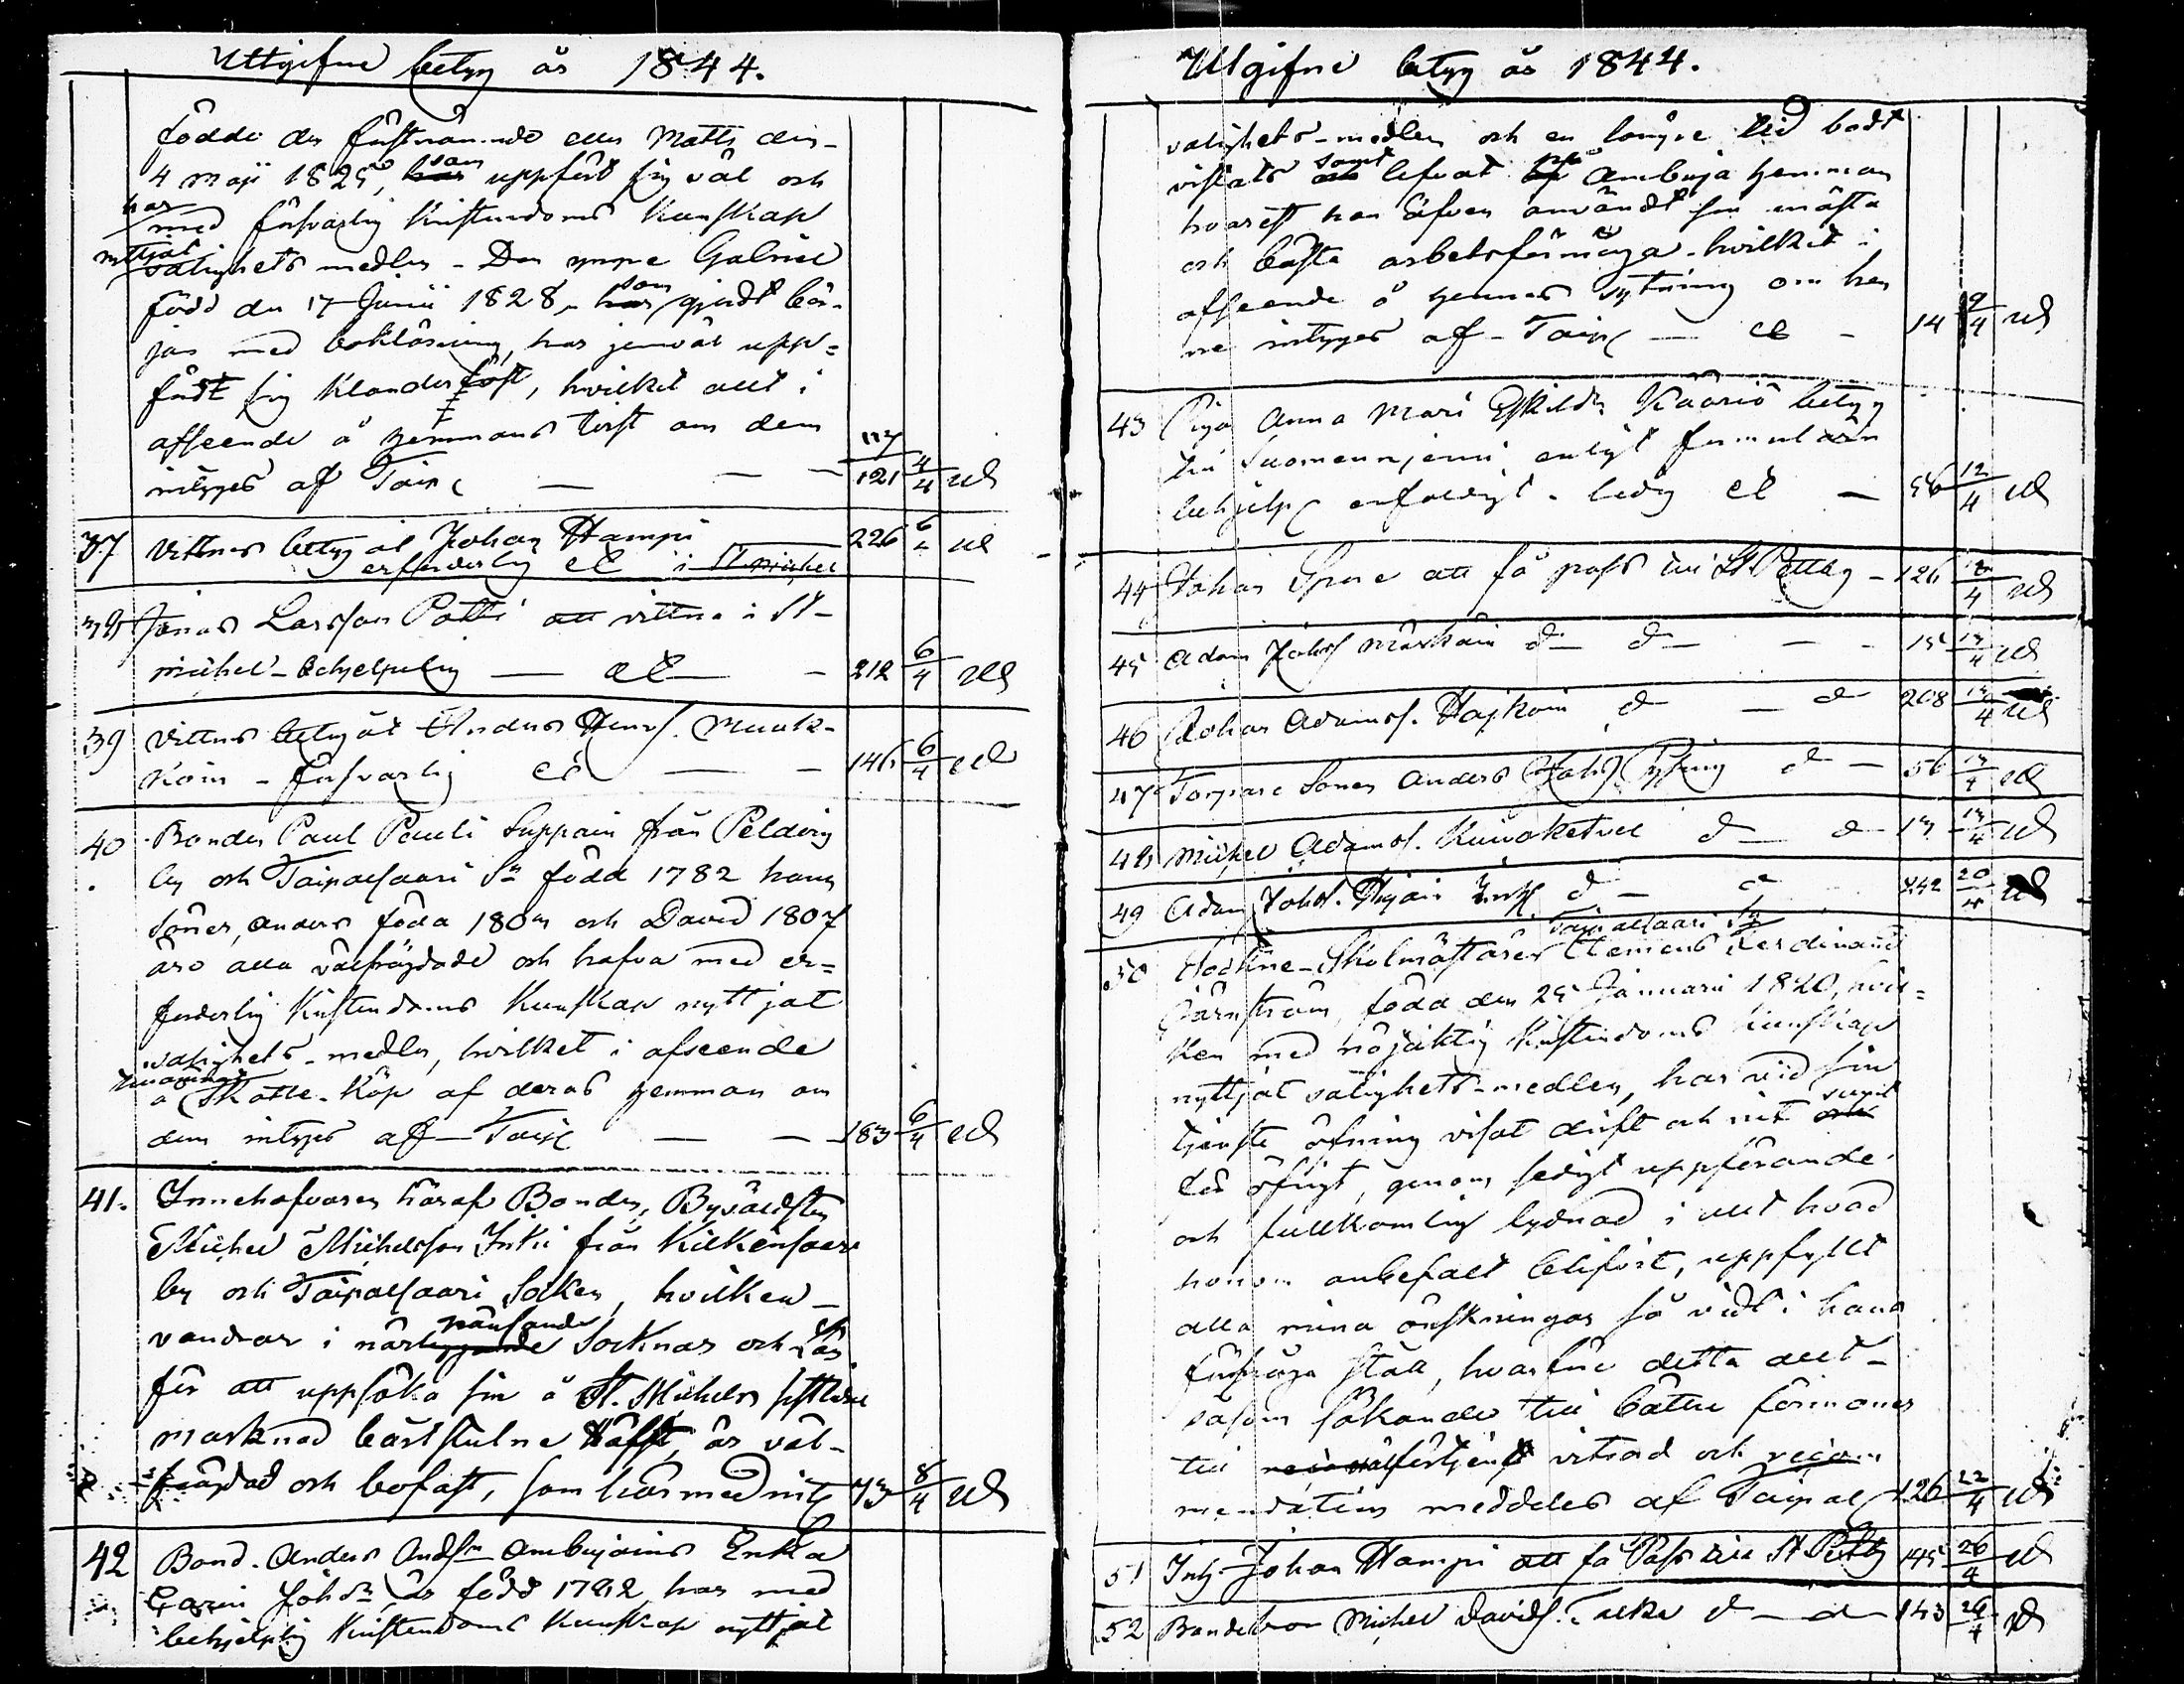 Uttgifne betyg år 1844.
födde den förstnämnde eller Matts den
4 Maji 1825, som uppfört sig väl och
har med försvarlig Kristendoms Kunskap
nyttjat salighets medlen - Den yngre Gabriel
född den 17 Junii 1828, som gjordt bör-
jan med boklösning, har jemväl upp-
fördt sig Klanderlöst, hvilket allt i
afseende å hemmans tvist om dem
intygas af Taip 117 121 4/4 ud
37 Vittnes betyg åt Johan Hampi
erforderlig 226 6/4 ud
38 Jonas Larsson Patti att vittna i St
Michel - behjelpelig 212 6/4 ud
39 Vittnes betyg åt Anders Henrs. Muuk-
Koin - försvarlig 146 6/4 ud
40 Bonden Paul Pauli Suppoin från
by och Taipalsaari Sn född 1782 hans
Söner, Anders föda 1803 och David 1807
äro alla välfrägdade och hafva med er-
forderlig Kristendoms Kunskap nyttjat
salighets-medlen, hvilket i afseende
å Skatte-Köp af deras hemman om
dem intygas af Taip 183 6/4 ud
41. Innehafvaren häraf Bonden, Byväldsten
Michel Michelsson Inki från Kilkinsaari
by och Taipalsaari Socken, hvilken
vandrar i när gränsande Socknar och Län
för att uppsöka sin å St. Michels sistledne
marknad bortstulne Häst, är väl-
frägdad och bofast, som härmed intyg 73 8/4 ud
42 Bond. Anders Andsn Ambujains Enka
Carin Johdr är född 1782, har med
behjelplig Kristendoms Kunskap nyttjat
Utgifne betyg år 1844.
salighets-medlen och en längre tid bodt
vistats samt lefvat på Ambuja hemman
hvarest hon äfven användt sin mästa
och bästa arbetsförmåga - hvilket i
afseende å hennes sytning om hen
ne intygas af Taip 14 9/4 ud
43 Piga Anna Mari Eskilsdr Kääriä betyg
till Suomenniemi enligt formulären
behjelp enfaldigt - ledig 56 12/4 ud
44 Johan att få pass till St Petbg 126 12/4 ud
45 Adam Johs d d 15 13/4 ud
46 Johan Adams. d d 208 13/4 ud
47 Torpare Sonen Anders Johs. d 56 13/4 ud
48 Michel Adams. d d 13 13/4 ud
49 Adam Johs. d d 242 20/4 ud
50 Sockne-Skolmästaren Taipalsaari Sn Clemens Ferdinand
född den 25 Januarii 1820, hvil-
ken med nöjaktig Kristendoms Kunskap
nyttjat salighets-medlen, har vid sin
tjenste öfning visat drift och nit samt
för öfrigt, genom sedigt uppförande
och fullkomlig lydnad i allt hvad
honom anbefalt blifvit, uppfyllt
alla mina önskningar så vidt i hans
förmåga stått, hvarföre detta allt
såsom sökande till bättre förmoner
till välförtjent vitsord och recom
mendation meddeles af Taipal 126 22/4 ud
51 Inh Johan Hampi att få Pass till St Petbg 195 26/4 ud
52 Bondeson Michel Davids. d d 143 29/4 ud